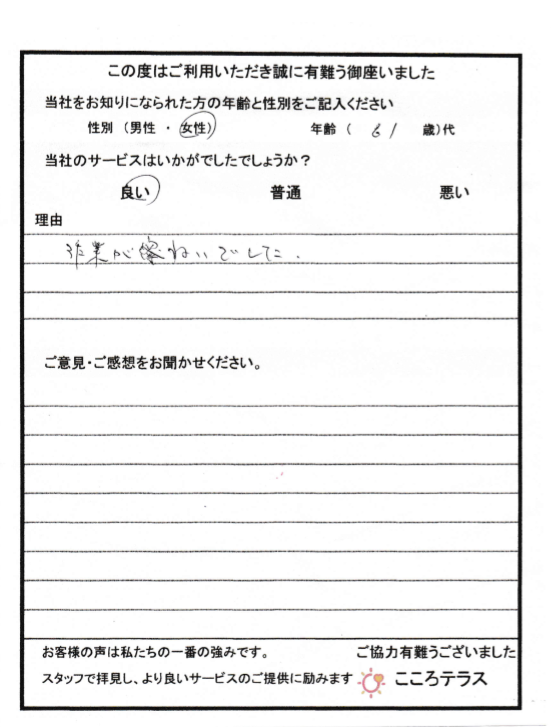 この度はご利用いただき誠に有難う御座いました
当社をお知りになられた方の年齢と性別をご記入ください
性別（男性 ・ 女性） 年齢（ 61 歳）代
当社のサービスはいかがでしたでしょうか？
良い 普通 悪い
理由
作業が ねいでした.
ご意見・ご感想をお聞かせください。
お客様の声は私たちの一番の強みです。 ご協力有難うございました
スタッフで拝見し、より良いサービスのご提供に励みます こころテラス